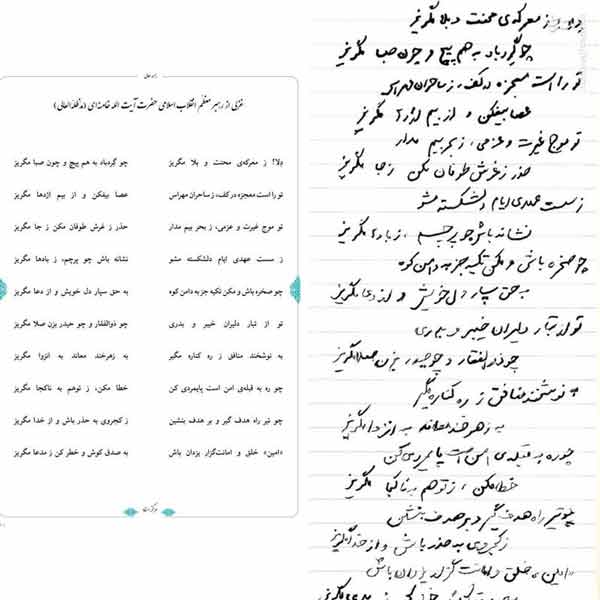 غزلی از رهبر معظم انقلاب اسلامی حضرت آیت الله خامنه‌ای (مدظله‌العالی)
دلا! ز معرکه‌ی محنت و بلا مگریز چو گردباد به هم پیچ و چون صبا مگریز
تو راست معجزه در کف، ز ساحران مهراس عصا بیفکن و از بیم اژدها مگریز
تو موج غیرت و عزمی، ز بحر بیم مدار حذر ز غرش طوفان مکن ز جا مگریز
ز سست عهدی ایام دلشکسته مشو نشانه باش چو پرچم، ز بادها مگریز
چو صخره باش و مکن تکیه جز به دامن کوه به حق سپار دل خویش و از دعا مگریز
تو از تبار دلیران خیبر و بدری چو ذوالفقار و چو حیدر بزن صلا مگریز
به نوشخند منافق ز ره کناره مگیر به زهرخند معاند به انزوا مگریز
چو ره به قبله‌ی امن است پایمردی کن خطا مکن، ز توهم به ناکجا مگریز
چو تیر راه هدف گیر و بر هدف بنشین ز کجروی به حذر باش و از خدا مگریز
«امین» خلق و امانت‌گزار یزدان باش به صدق کوش و خطر کن ز مدعا مگریز
دلا ز معرکه‌ی محنت و بلا مگریز
چو گردباد به هم پیچ و چون صبا مگریز
تو راست معجزه در کف، ز ساحران مهراس
عصا بیفکن و از بیم اژدها مگریز
تو موج غیرت و عزمی، ز بحر بیم مدار
حذر ز غرش طوفان مکن ز جا مگریز
ز سست عهدی ایام دلشکسته مشو
نشانه باش چو پرچم، ز بادها مگریز
چو صخره باش و مکن تکیه جز به دامن کوه
به حق سپار دل خویش و از دعا مگریز
تو از تبار دلیران خیبر و بدری
چو ذوالفقار و چو حیدر بزن صلا مگریز
به نوشخند منافق ز ره کناره مگیر
به زهرخند معاند به انزوا مگریز
چو ره به قبله‌ی امن است پایمردی کن
خطا مکن، ز توهم به ناکجا مگریز
چو تیر راه هدف گیر و بر هدف بنشین
ز کجروی به حذر باش و از خدا مگریز
«امین» خلق و امانت گزار یزدان باش